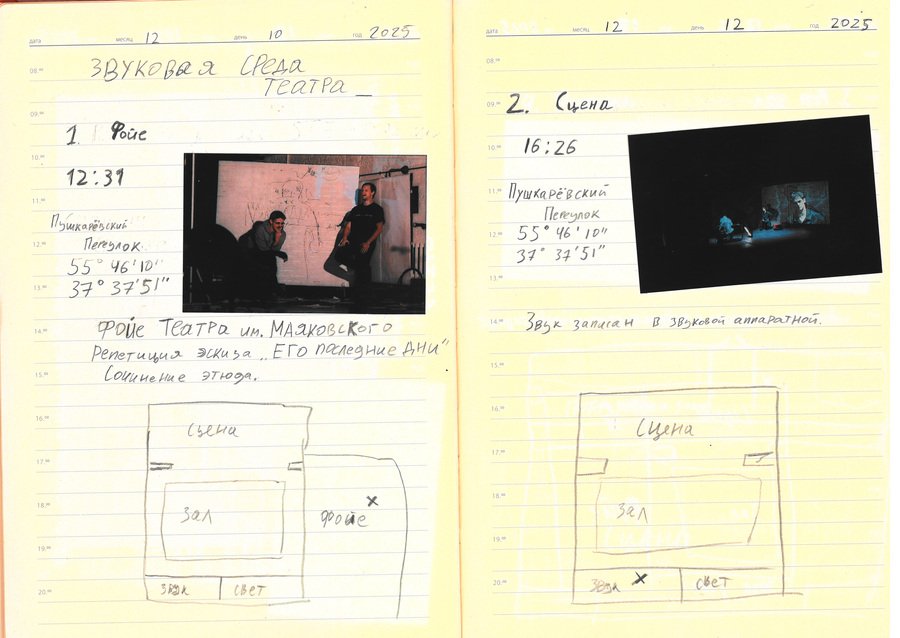 дата месяц 12 день 10 год 2025
08.00
ЗВУКОВАЯ СРЕДА
ТЕАТРА_
09.00
1. Фойе
10.00
12:31
11.00
Пушкарёвский
Переулок
12.00
55° 46'10"
37° 37'51"
13.00
14.00
ФОЙЕ ТЕАТРА им. МАЯКОВСКОГО
Репетиция эскиза „ЕГО последние ДНИ"
15.00
Сочинение этюда.
16.00
Сцена
17.00
18.00
Зал
Фойе
19.00
20.00
Звук
свет
дата месяц 12 день 12 год 2025
08.00
09.00
2. Сцена
10.00
16:26
11.00
Пушкарёвский
Переулок
12.00
55° 46'10"
37° 37'51"
13.00
14.00
Звук записан в звуковой аппаратной.
15.00
16.00
Сцена
17.00
18.00
Зал
19.00
20.00
Звук
свет